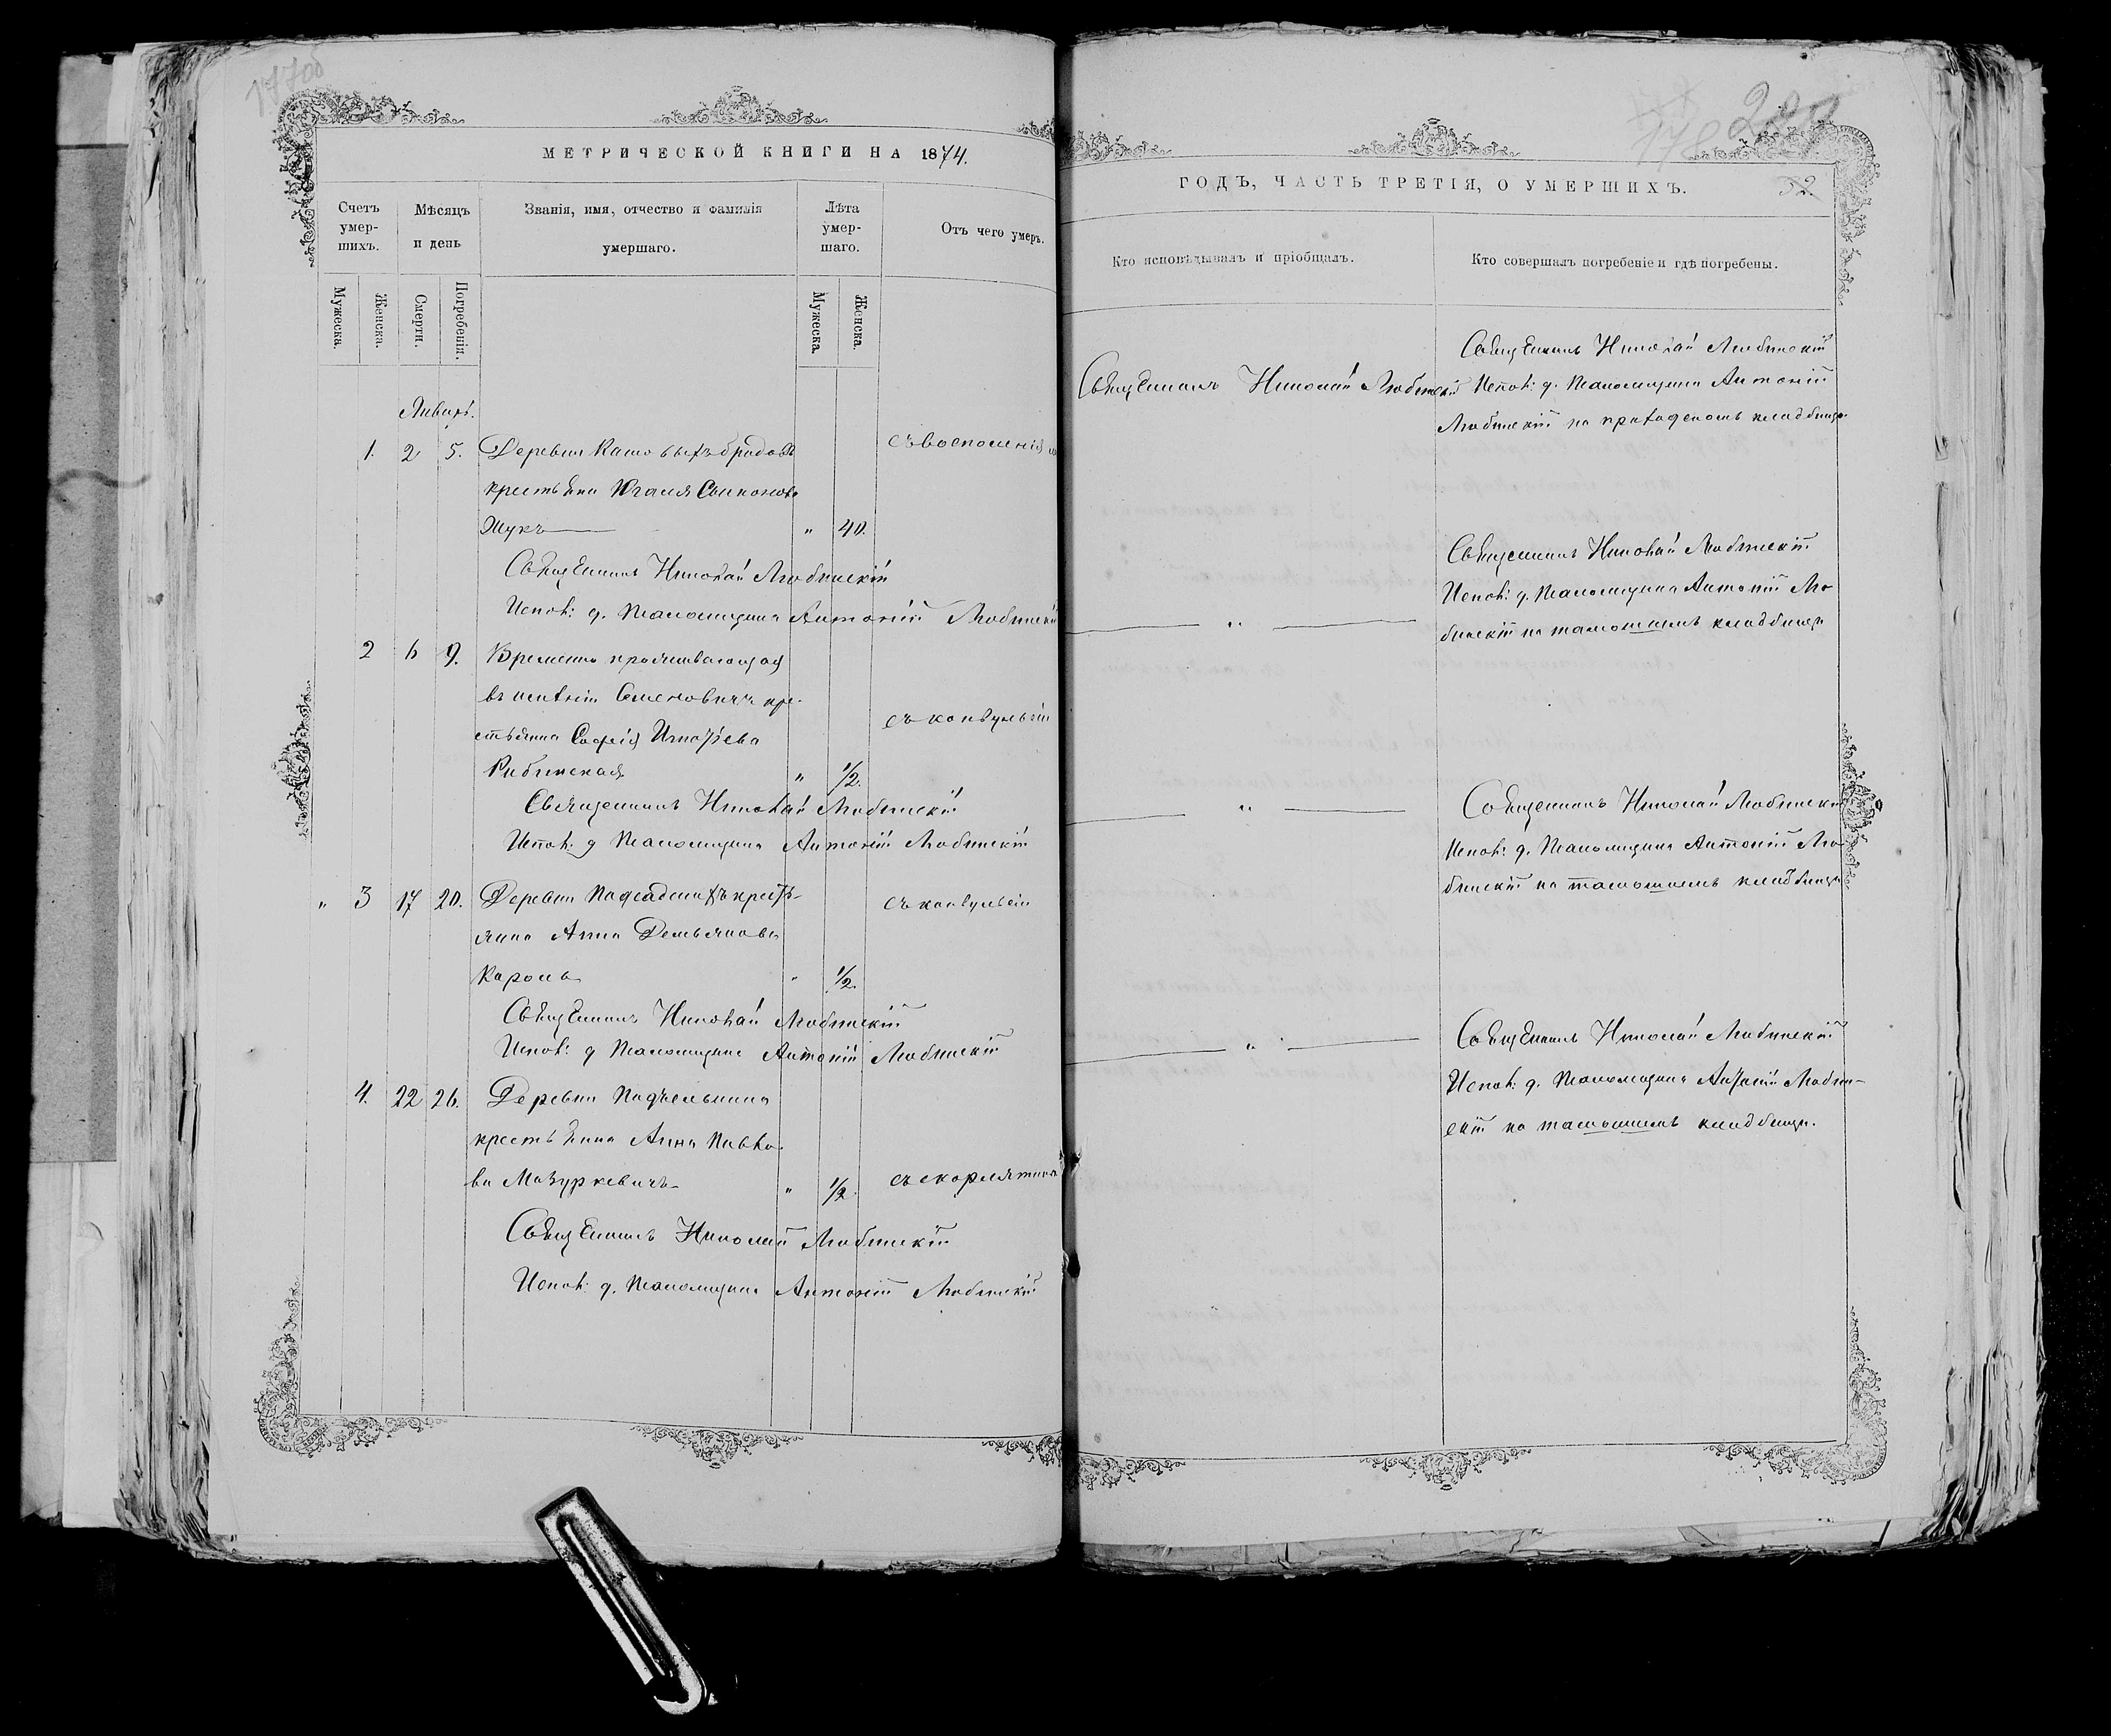 МЕТРИЧЕСКОЙ КНИГИ НА 1874.
Счетъ умер-шихъ.
Мѣсяцъ и день
Званія, имя, отчество и фамилія умершаго.
Лѣта умер-шаго.
Отъ чего умеръ.
Мужеска.
Женска.
Смерти.
Погребенія.
Мужеска.
Женска.
Январь.
1. 2 5. Деревни бродовъ
крестьянка
Жукъ " 40.
Священникъ Николай Любинскій
Испов: д. Псаломщика Антоній Любинскій
2 6 9. Временно проживающая
въ имѣніи Семеновичи кре-
стьянка Софія Игнатіева
Рибинская " 1/2.
съ конвульсіи
Священникъ Николай Любинскій
Испов: д Псаломщика Антоній Любинскій
" 3 17 20. Деревни Подсадскихъ кресть-
янка Анна Демьянова
Кароль " 1/2.
съ конвульсіи
Священникъ Николай Любинскій
Испов: д Псаломщика Антоній Любинскій
4. 22 26. Деревни
крестьянка Анна Павло-
ва Мазуркевичъ " 1/2.
съ скорлятина
Священникъ Николай Любинскій
Испов: д. Псаломщика Антоній Любинскій
178 200
ГОДЪ, ЧАСТЬ ТРЕТІЯ, О УМЕРШИХЪ. 52.
Кто исповѣдывалъ и пріобщалъ.
Кто совершалъ погребеніе и гдѣ погребены.
Священникъ Николай Любинскій
Священникъ Николай Любинскій
Испов: д. Псаломщика Антоній
Любинскій на приходскомъ кладбищѣ
"
Священникъ Николай Любинскій
Испов: д. Псаломщика Антоній Лю-
бинскій на тамошнемъ кладбищѣ
"
Священникъ Николай Любинскій
Испов: д. Псаломщика Антоній Лю-
бинскій на тамошнемъ кладбищѣ
"
Священникъ Николай Любинскій
Испов: д. Псаломщика Антоній Любин-
скій на тамошнемъ кладбищѣ.